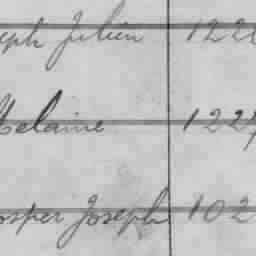 eph Julien 122
Melaine 1227
osper Joseph 102